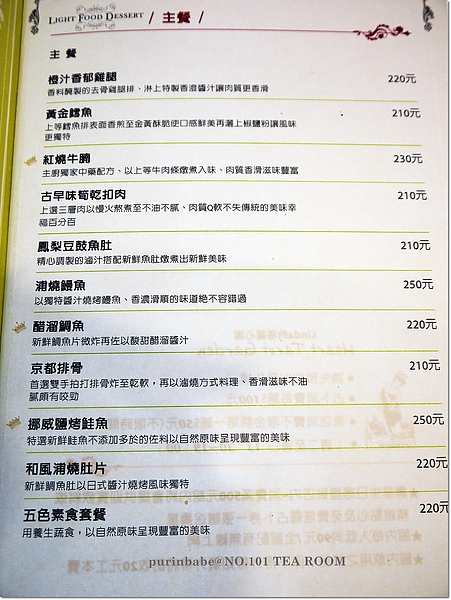 LIGHT FOOD DESSERT / 主餐 /
主餐
橙汁香郁雞腿 220元
香料醃製的去骨雞腿排、淋上特製香澄醬汁讓肉質更香滑
黃金鱈魚 210元
上等鱈魚排表面香煎至金黃酥脆使口感鮮美再灑上椒鹽粉讓風味
更獨特
紅燒牛腩 230元
主廚獨家中藥配方、以上等牛肉條燉煮入味、肉質香滑滋味豐富
古早味筍乾扣肉 210元
上選三層肉以慢火熬煮至不油不膩、肉質Q軟不失傳統的美味幸
福百分百
鳳梨豆鼓魚肚 210元
精心調製的滷汁搭配新鮮魚肚燉煮出新鮮美味
浦燒鰻魚 250元
以獨特醬汁燒烤鰻魚、香濃滑順的味道絕不容錯過
醋溜鯛魚 220元
新鮮鯛魚片微炸再佐以酸甜醋溜醬汁
京都排骨 210元
首選雙手拍打排骨炸至乾軟，再以滷燒方式料理、香滑滋味不油
膩頗有咬勁
挪威鹽烤鮭魚 250元
特選新鮮鮭魚不添加多於的佐料以自然原味呈現豐富的美味
和風浦燒肚片 220元
新鮮鯛魚肚以日式醬汁燒烤風味獨特
五色素食套餐 220元
用養生蔬食，以自然原味呈現豐富的美味
purinbabe@NO.101 TEA ROOM